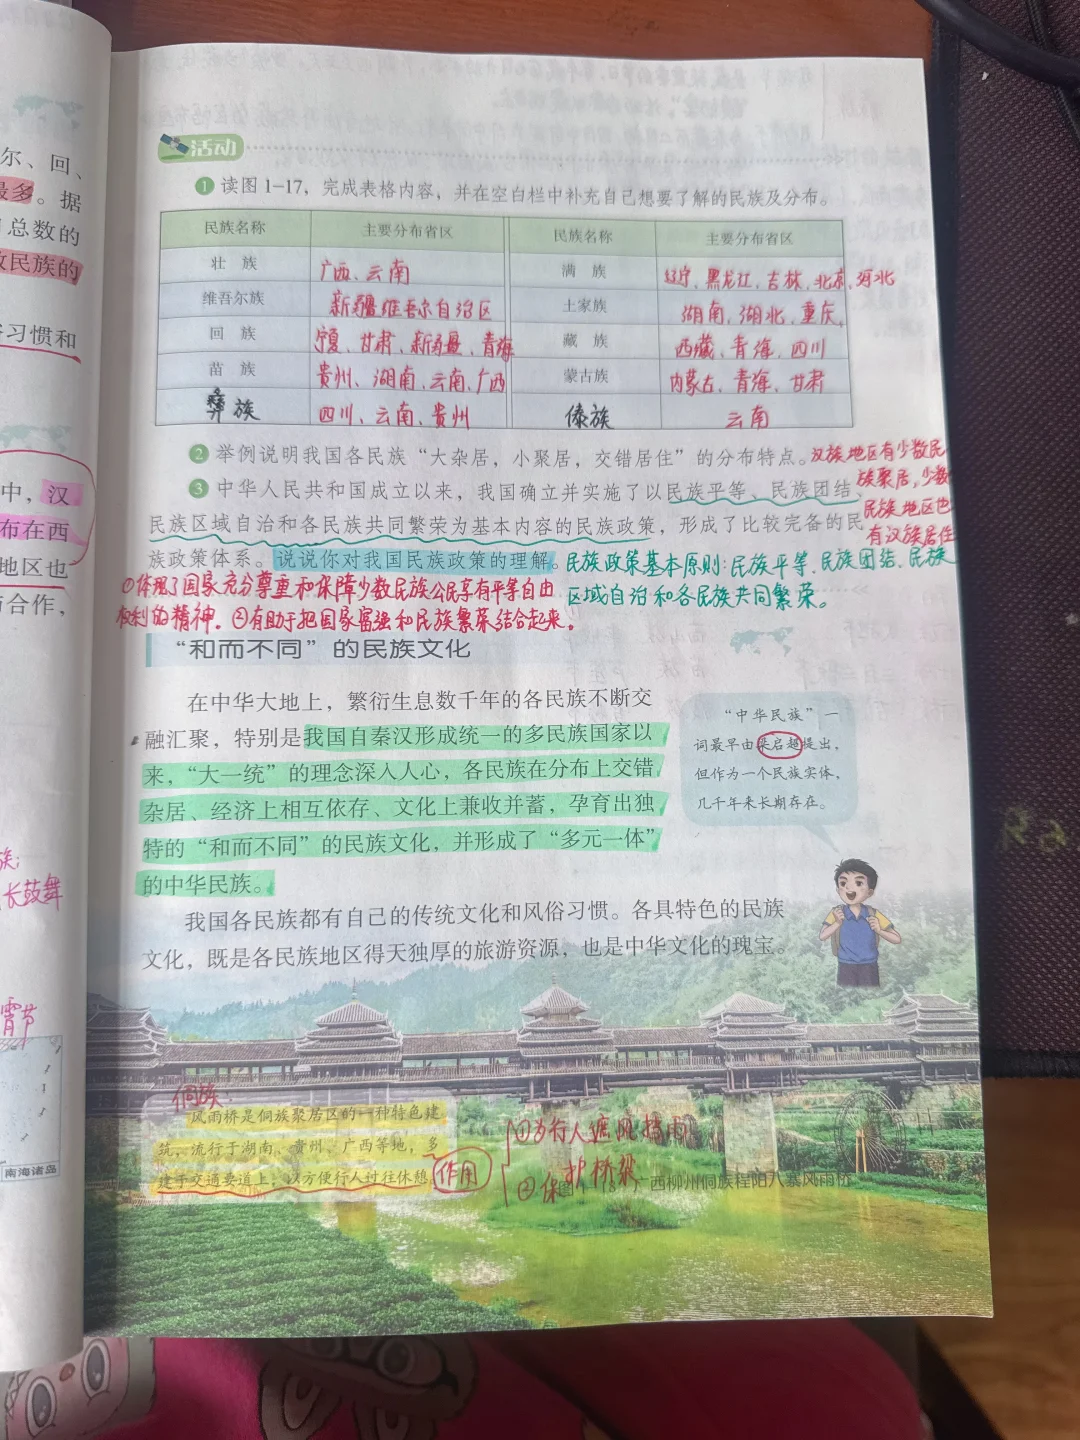 尔、回、
最多。据
总数的
数民族的
习惯和
中，汉
布在西
地区也
合作，
族；
长鼓舞
霄节
南海诸岛
活动
1 读图1-17，完成表格内容，并在空白栏中补充自己想要了解的民族及分布。
民族名称 主要分布省区 民族名称 主要分布省区
壮 族 广西、云南 满 族 辽宁、黑龙江、吉林、北京、河北
维吾尔族 新疆维吾尔自治区 土家族 湖南、湖北、重庆、
回 族 宁夏、甘肃、新疆、青海 藏 族 西藏、青海、四川
苗 族 贵州、湖南、云南、广西 蒙古族 内蒙古、青海、甘肃
彝族 四川、云南、贵州 傣族 云南
2 举例说明我国各民族“大杂居，小聚居，交错居住”的分布特点。汉族地区有少数民
族聚居，少数
民族地区也
有汉族居住
3 中华人民共和国成立以来，我国确立并实施了以民族平等、民族团结、
民族区域自治和各民族共同繁荣为基本内容的民族政策，形成了比较完备的民
族政策体系。说说你对我国民族政策的理解。民族政策基本原则：民族平等、民族团结、民族
区域自治和各民族共同繁荣。
①体现了国家充分尊重和保障少数民族公民享有平等自由
权利的精神。②有助于把国家富强和民族繁荣结合起来。
“和而不同”的民族文化
在中华大地上，繁衍生息数千年的各民族不断交
融汇聚，特别是我国自秦汉形成统一的多民族国家以
来，“大一统”的理念深入人心，各民族在分布上交错
杂居、经济上相互依存、文化上兼收并蓄，孕育出独
特的“和而不同”的民族文化，并形成了“多元一体”
的中华民族。
“中华民族”一
词最早由梁启超提出，
但作为一个民族实体，
几千年来长期存在。
我国各民族都有自己的传统文化和风俗习惯。各具特色的民族
文化，既是各民族地区得天独厚的旅游资源，也是中华文化的瑰宝。
侗族
风雨桥是侗族聚居区的一种特色建
筑，流行于湖南、贵州、广西等地，多
建于交通要道上，以方便行人过往休憩
作用
①为行人遮风挡雨
②保护桥梁
西柳州侗族程阳八寨风雨桥